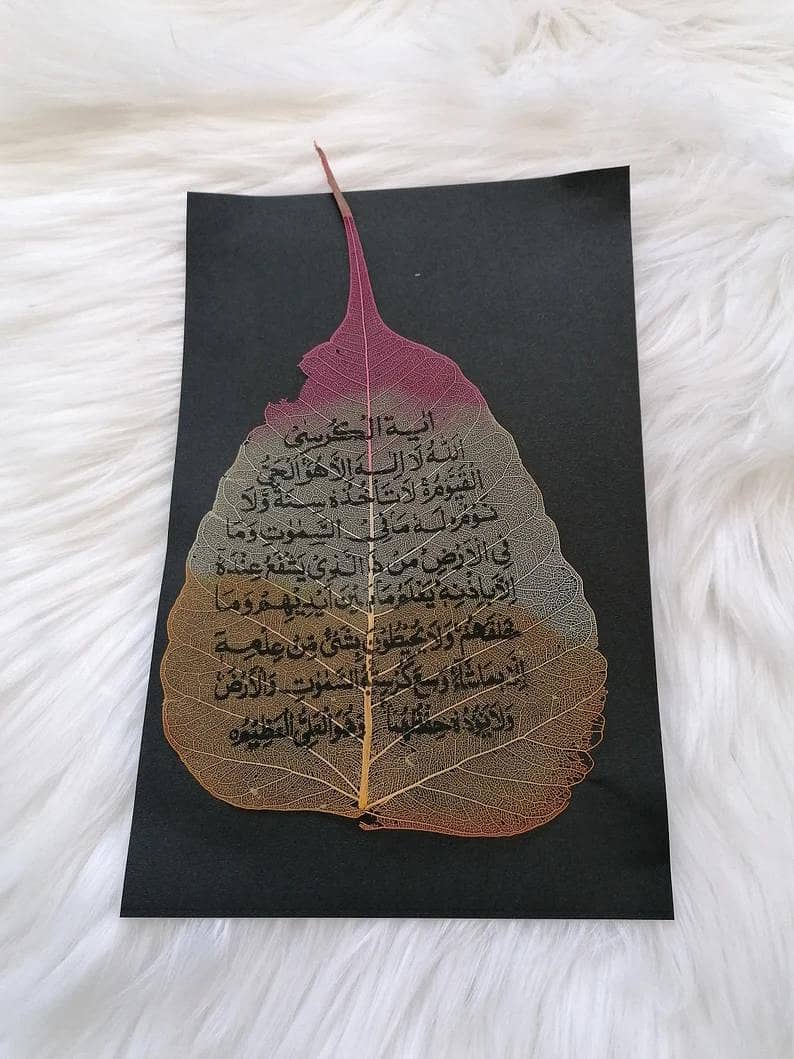 اٰية الكرسي
اَللّٰهُ لَا اِلٰهَ اِلَّا هُوَ اَلْحَيُّ
الْقَيُّومُ ۚ لَا تَأْخُذُهُ سِنَةٌ وَّلَا
نَوْمٌ ؕ لَهٗ مَا فِي السَّمٰوٰتِ وَمَا
فِي الْاَرْضِ مَنْ ذَا الَّذِيْ يَشْفَعُ عِنْدَهٗ
اِلَّا بِاِذْنِهٖ يَعْلَمُ مَا بَيْنَ اَيْدِيْهِمْ وَمَا
خَلْفَهُمْ وَلَا يُحِيْطُوْنَ بِشَىْءٍ مِّنْ عِلْمِهٖ
اِلَّا بِمَاشَآءَ وَسِعَ كُرْسِيُّهُ السَّمٰوٰتِ وَالْاَرْضَ
وَلَا يَؤُدُهٗ حِفْظُهُمَا وَهُوَ الْعَلِيُّ الْعَظِيْمُ ۝